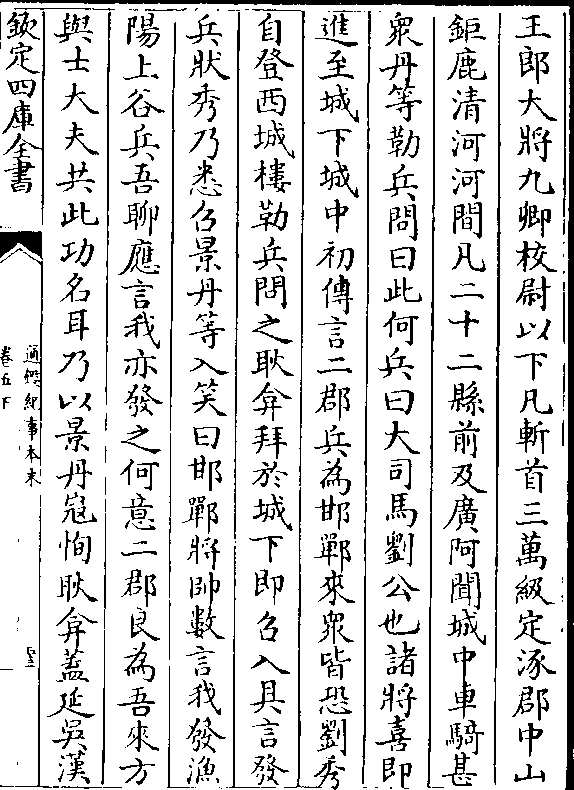 王郎大將九卿校尉以下凡斬首三萬級定涿郡中山
鉅鹿清河河間凡二十二縣前及廣阿聞城中車騎甚
衆丹等勒兵問曰此何兵曰大司馬劉公也諸將喜即
進至城下城中初傳言二郡兵為邯鄲來衆皆恐劉秀
自登西城樓勒兵問之耿弇拜於城下即召入具言發
兵狀秀乃悉召景丹等入笑曰邯鄲將帥數言我發漁
陽上谷兵吾聊應言我亦發之何意二郡良為吾來方
與士大夫共此功名耳乃以景丹冦恂耿弇蓋延吳漢
欽定四庫全書
通鑑紀事本末
卷五下